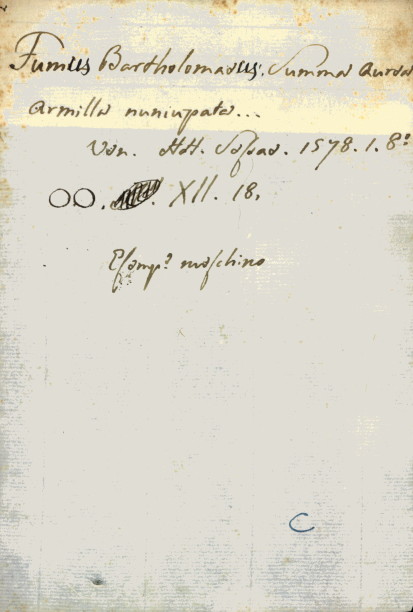 Fumus Bartholomaeus. Summa Aurea
Armilla nuniupata...
Ven. Hdd. Sessae. 1578. 1. 8°
OO. XII. 18.
Esemp.e meschino
C